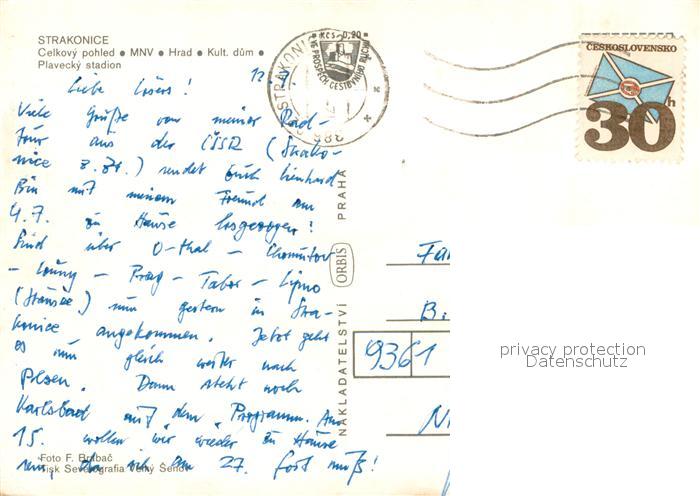 STRAKONICE
Celkový pohled • MNV • Hrad • Kult. dům •
Plavecký stadion
12.7.
Liebe Losers!
Viele Grüße von meiner Rad-
tour aus der ČSSR (Strako-
nice z.Zt.) sendet Euch Lienhard
Bin mit meinem Freund am
4.7. zu Hause losgezogen!
Sind über O-thal - Chomutov
- Louny - Prag - Tabor - Lipno
(Stausee) nun gestern in Stra-
konice angekommen. Jetzt geht
es nun gleich weiter nach
Pilsen. Dann steht noch
Karlsbad auf dem Programm. Am
15. wollen wir wieder zu Hause
sein, da ich am 27. fort muß!
Foto F. Brabač
Tisk Severografia Velký Šenov
NAKLADATELSTVÍ ORBIS PRAHA
STRAKONICE
Kčs 0,20
ČESKOSLOVENSKO
30h
Fa
B.
9361
N
privacy protection
Datenschutz